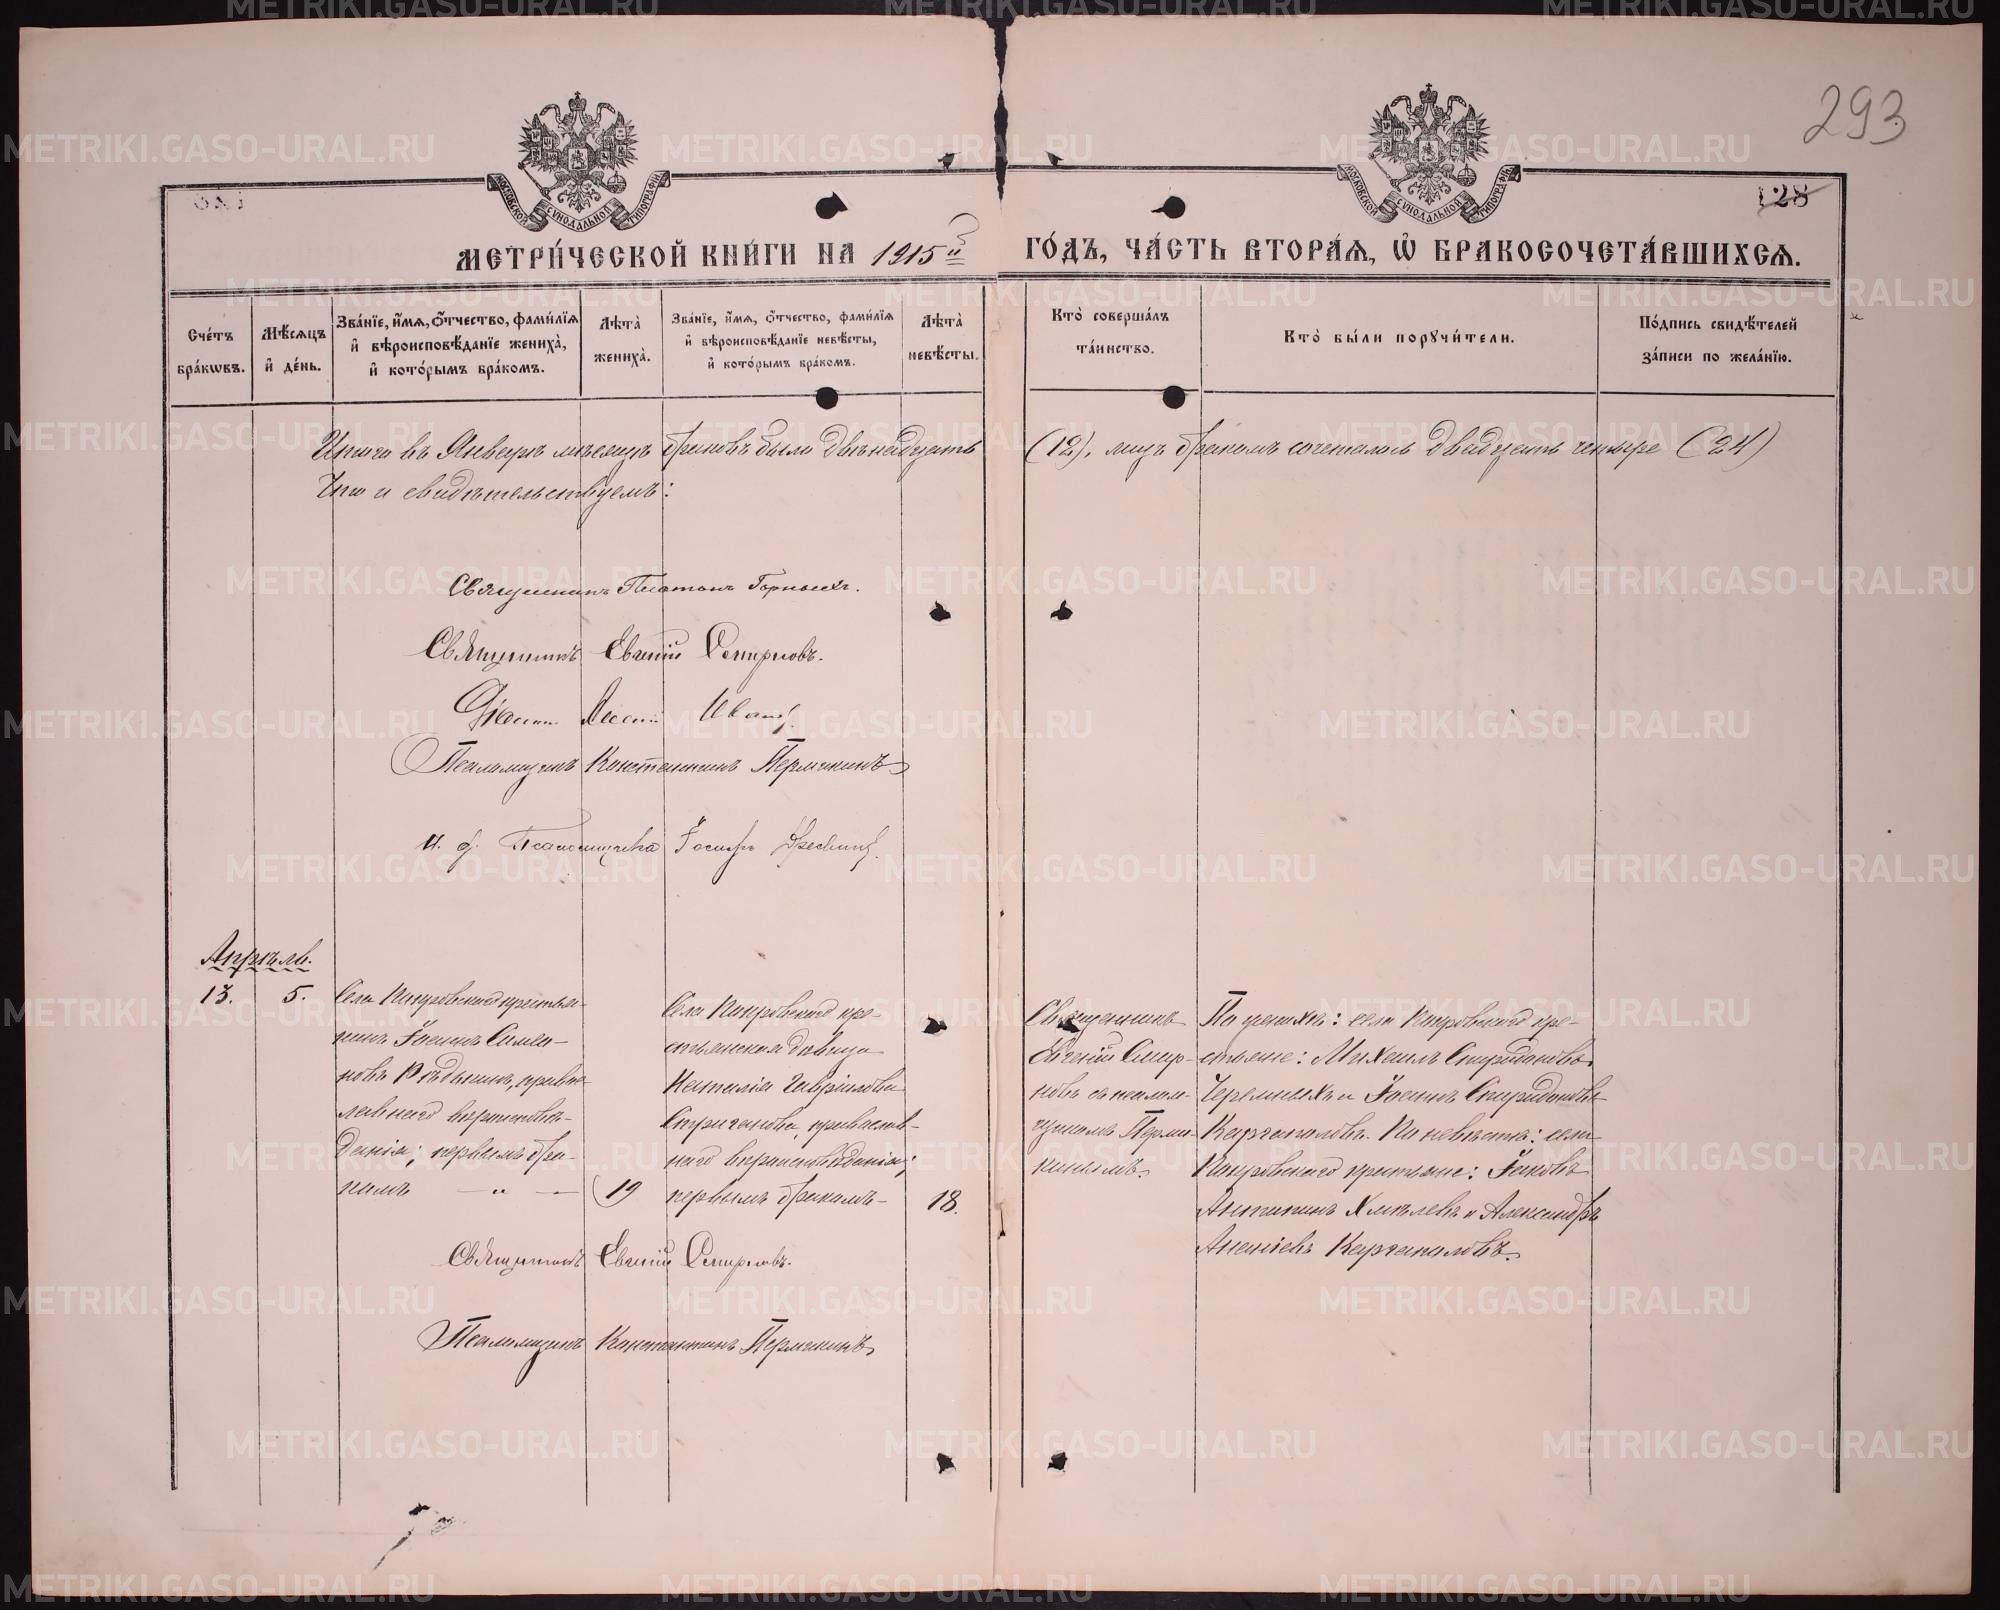 293
128
МОСКОВСКОЙ СѴНОДАЛЬНОЙ ТИПОГРАФІИ
МОСКОВСКОЙ СѴНОДАЛЬНОЙ ТИПОГРАФІИ
МЕТРИ́ЧЕСКОЙ КНИ́ГИ НА 1915й ГО́ДЪ, ЧА́СТЬ ВТОРА́Ѧ, Ѡ҆ БРАКОСОЧЕТА́ВШИХСѦ.
Сче́тъ бра́кѡвъ.
Мѣ́сѧцъ и҆ де́нь.
Зва́нїе, и҆́мѧ, ѻ҆́тчество, фами́лїѧ и҆ вѣроисповѣ́данїе жениха̀, и҆ кото́рымъ бра́комъ.
Лѣта̀ жениха̀.
Зва́нїе, и҆́мѧ, ѻ҆́тчество, фами́лїѧ и҆ вѣроисповѣ́данїе невѣ́сты, и҆ кото́рымъ бра́комъ.
Лѣта̀ невѣ́сты.
Кто̀ соверша́лъ та́инство.
Кто̀ бы́ли порꙋчи́тели.
По́дпись свидѣ́телей за́писи по жела́нїю.
Итого въ Январѣ мѣсяцѣ браковъ было двѣнадцать (12), лицъ бракомъ сочеталось двадцать четыре (24)
Что и свидѣтельствуемъ:
Священникъ Платонъ Горныхъ.
Священникъ Евгеній Смирновъ.
Псаломщикъ Константинъ Пермикинъ
и. д. Псаломщика Іосифъ
Апрѣль.
13. 5.
Села Покровскаго крестья-
нинъ Іоаннъ Симео-
новъ Рѣдькинъ, правос-
лавнаго вѣроисповѣ-
данія; первымъ бра-
комъ — „ — 19
Села Покровскаго кре-
стьянская дѣвица
Наталія Гавріилова
Стриганова, православ-
наго вѣроисповѣданія;
первымъ бракомъ 18.
Священникъ
Евгеній Смир-
новъ съ псалом-
щикомъ Перми-
кинымъ.
По женихѣ: села Покровскаго кре-
стьяне: Михаилъ Спиридоновъ
Черемныхъ и Іоаннъ Спиридоновъ
Каргаполовъ. По невѣстѣ: села
Покровскаго крестьяне: Іаковъ
Антипинъ Хмѣлевъ и Александръ
Ананіевъ Каргаполовъ.
Священникъ Евгеній Смирновъ.
Псаломщикъ Константинъ Пермикинъ
METRIKI.GASO-URAL.RU